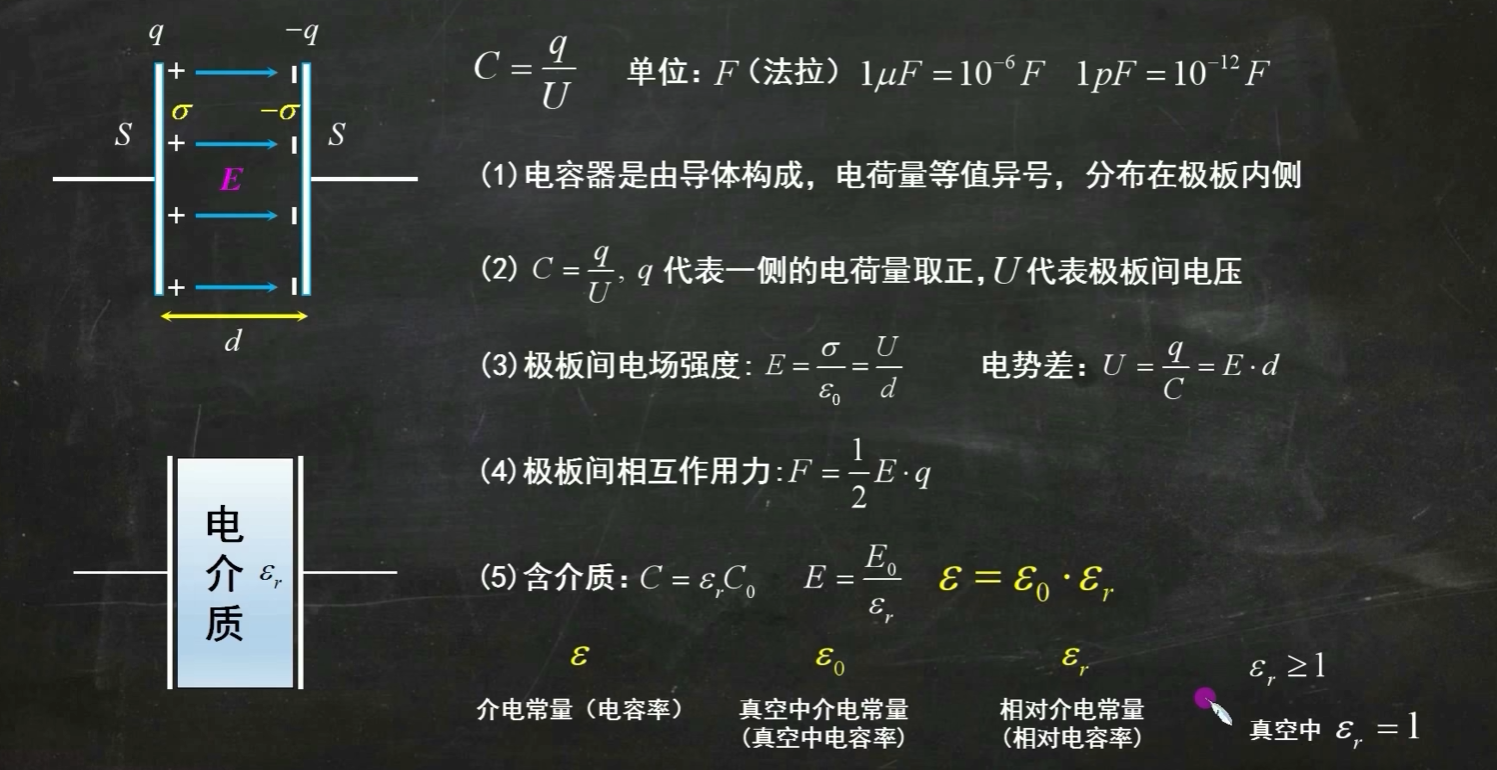 q −q
σ −σ
S S
E
d
C = q/U 单位：F（法拉）1μF = 10⁻⁶ F 1pF = 10⁻¹² F
(1) 电容器是由导体构成，电荷量等值异号，分布在极板内侧
(2) C = q/U, q 代表一侧的电荷量取正, U 代表极板间电压
(3) 极板间电场强度: E = σ/ε₀ = U/d 电势差：U = q/C = E·d
(4) 极板间相互作用力: F = 1/2 E·q
电介质 εᵣ
(5) 含介质：C = εᵣC₀ E = E₀/εᵣ ε = ε₀·εᵣ
ε ε₀ εᵣ
εᵣ ≥ 1
介电常量（电容率） 真空中介电常量 相对介电常量
（真空中电容率） （相对电容率）
真空中 εᵣ = 1